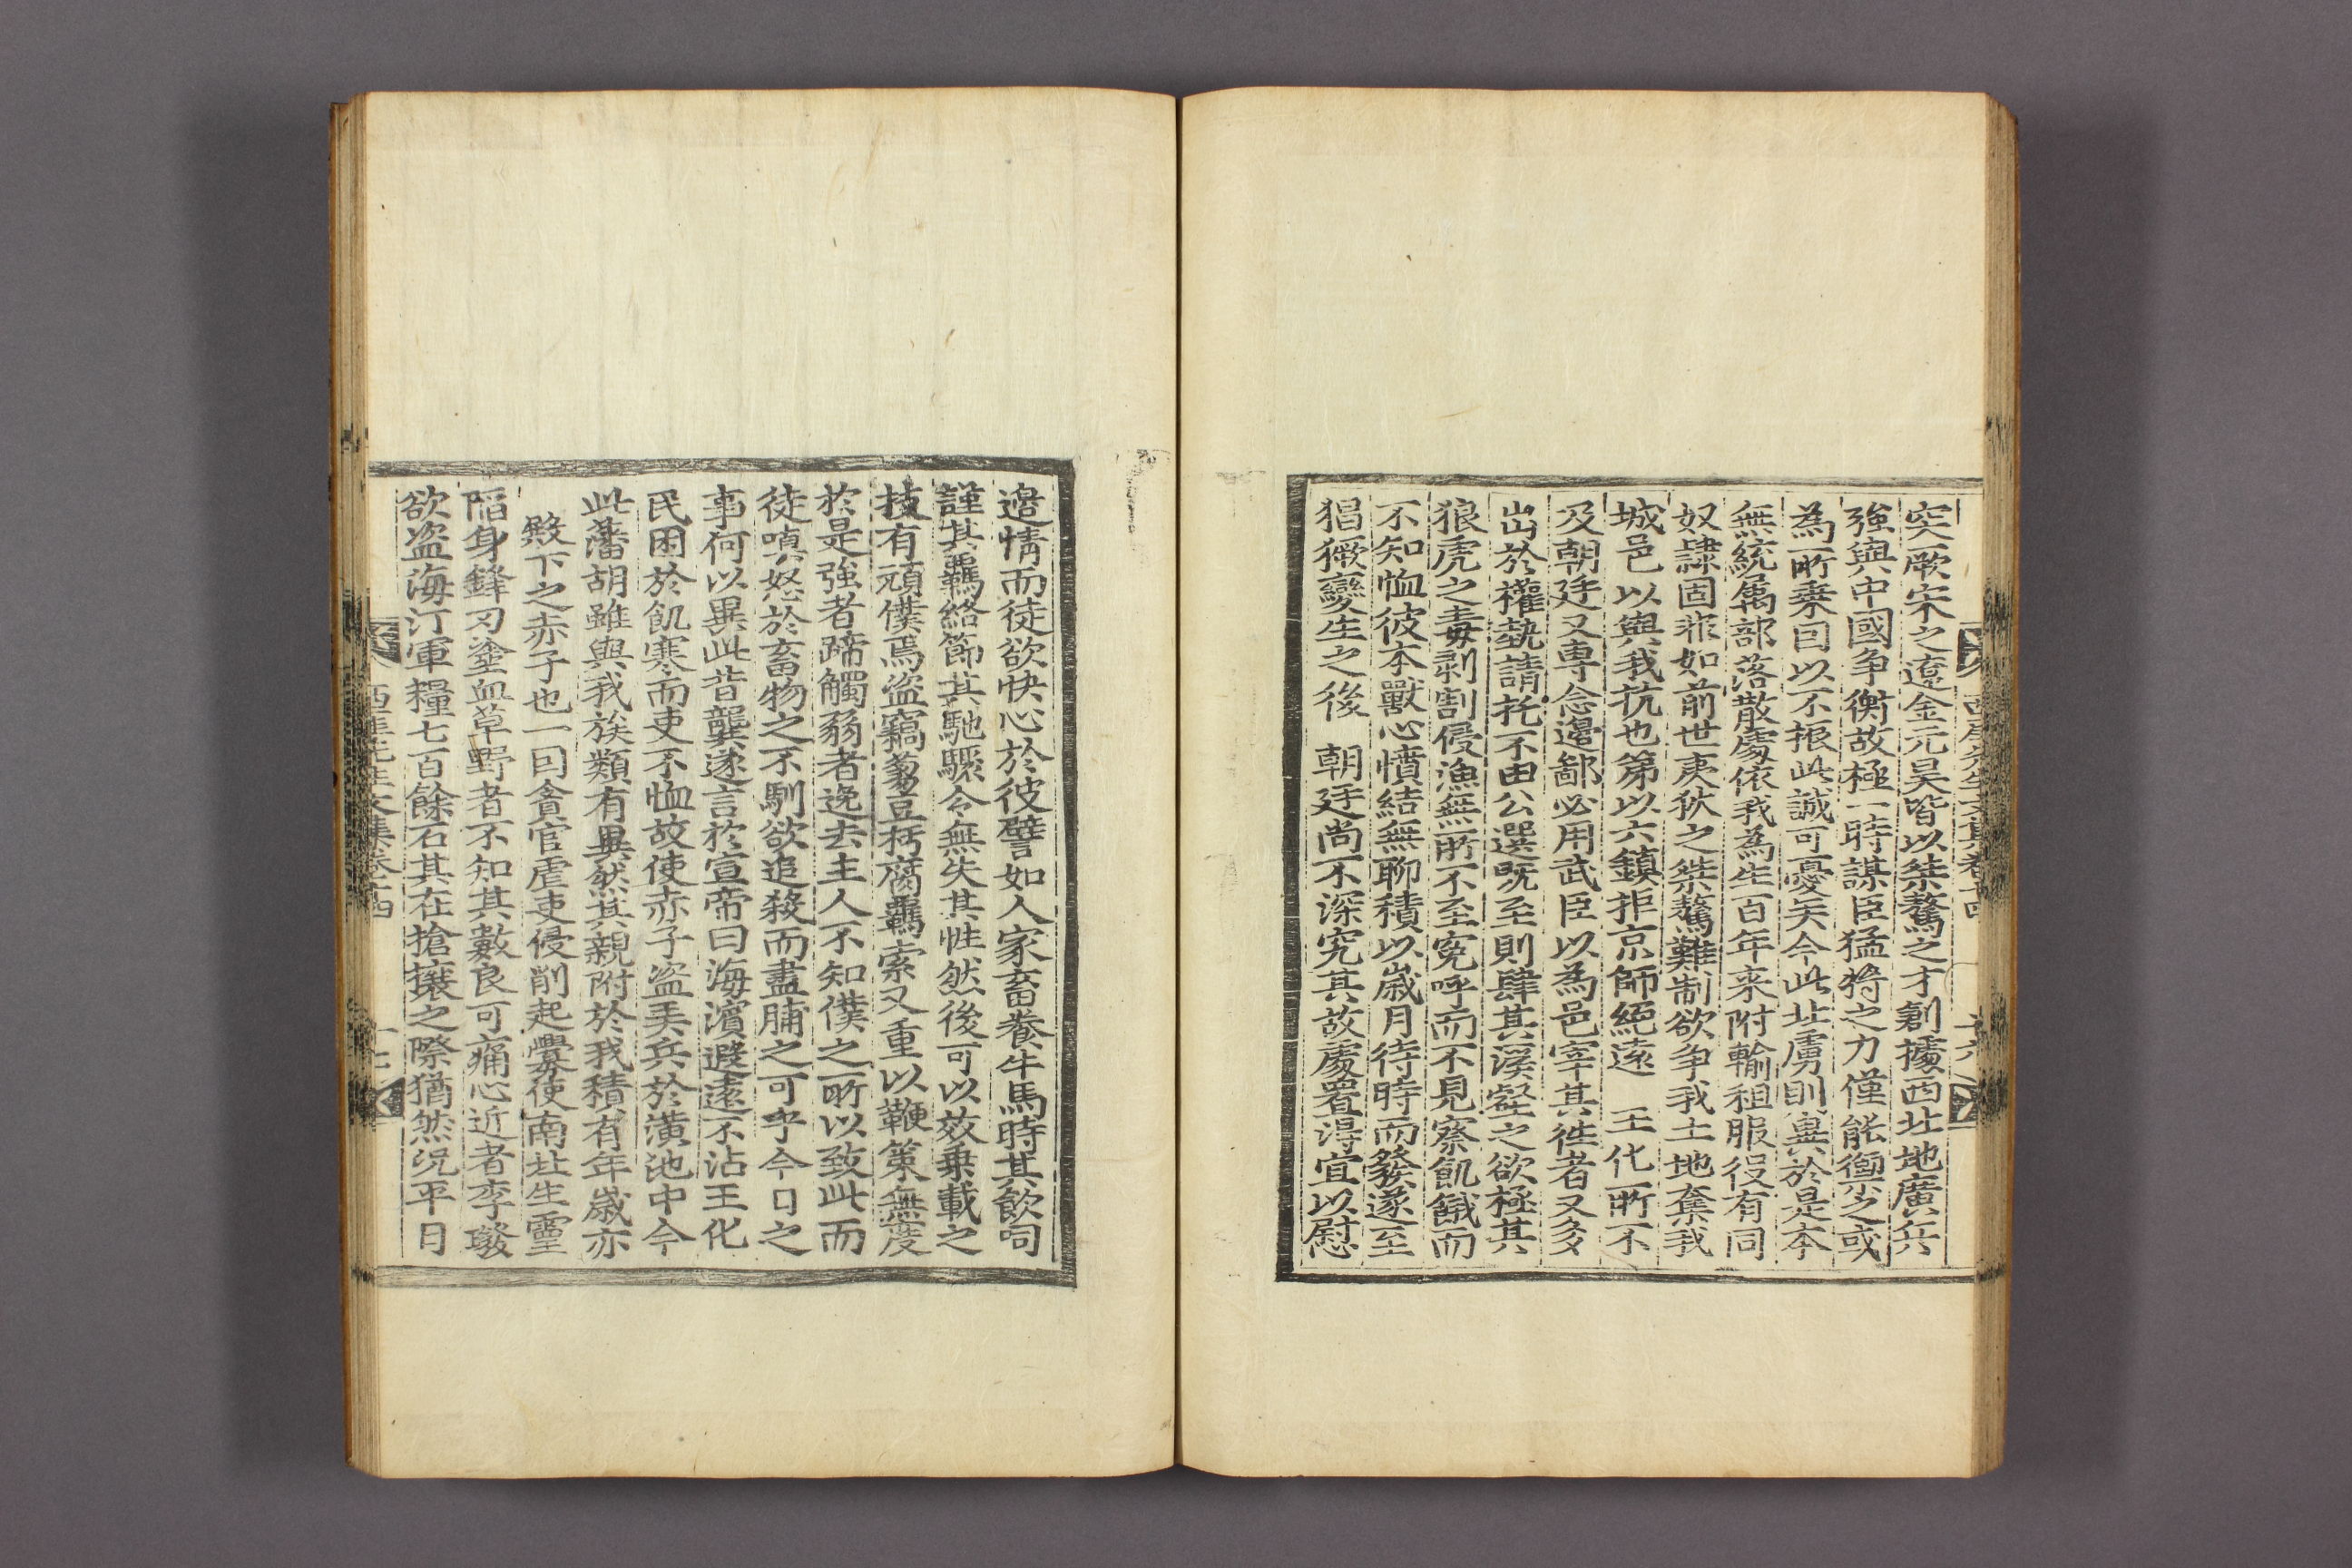 西厓先生文集卷十四 十六
突厥宋之遼金元昊皆以桀驁之才創據西北地廣兵
強與中國争衡故極一時謀臣猛將之力僅能禦之或
為所乗囙以不振此誠可憂矣今此北虜則異於是本
無統属部落散處依我為生百年来附輸租服役有同
奴隷固非如前世夷狄之桀驁難制欲争我土地奪我
城邑以與我抗也第以六鎮拒京師絶遠 王化所不
及朝廷又専念邊鄙必用武臣以為邑宰其徃者又多
出於權埶請托不由公選旣至則肆其溪壑之欲極其
狼虎之毒剥割侵漁無所不至寃呼而不見察飢餓而
不知恤彼本獸心憤結無聊積以歳月待時而發遂至
猖獗變生之後 朝廷尚不深究其故處置得宜以慰
邊情而徒欲快心於彼譬如人家畜養牛馬時其飮呞
謹其羈絡節其馳驟令無失其性然後可以效乗載之
技有頑僕焉盗竊蒭豆朽腐羈索又重以鞭策無度
於是強者蹄觸弱者逸去主人不知僕之所以致此而
徒嗔怒於畜物之不馴欲追殺而盡脯之可乎今日之
事何以異此昔龔遂言於宣帝曰海濱遐遠不沾王化
民困於飢寒而吏不恤故使赤子盗弄兵於潢池中今
此藩胡雖與我族類有異然其親附於我積有年歳亦
殿下之赤子也一囙貪官虐吏侵削起釁使南北生靈
陷身鋒刃塗血草野者不知其數良可痛心近者李璥
欲盗海汀軍糧七百餘石其在搶攘之際猶然况平日
西厓先生文集卷十四 十七